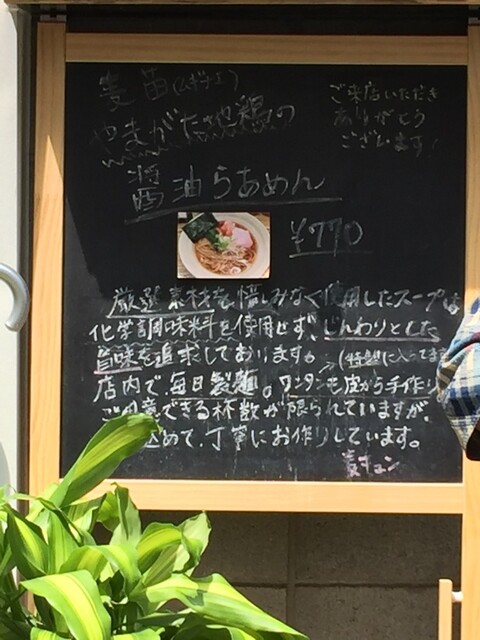 麦苗(ムギナエ)
やまがた地鶏の
醤油らあめん
ご来店いただき
ありがとう
ございます!
¥770
厳選素材を惜しみなく使用したスープは
化学調味料を使用せず、じんわりとした
旨味を追求しております。
(特製に入ってます
店内で、毎日製麺。ワンタンも皮から手作り
ご用意できる杯数が限られていますが、
込めて、丁寧にお作りしています。